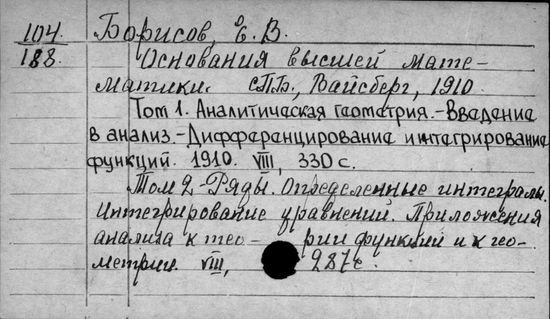 104. Борисов, Е. В.
188. Основания высшей мате-
матики. СПБ., Вайсберг, 1910
Том 1. Аналитическая геометрия.-Введение
в анализ.-Дифференцирование интегрирование
функций. 1910. VIII, 330 с.
Том 2.-Ряды. Определенные интегралы.
Интегрирование уравнений. Приложения
анализа к тео- рии функций и к гео-
метрии. VIII, 287 с.